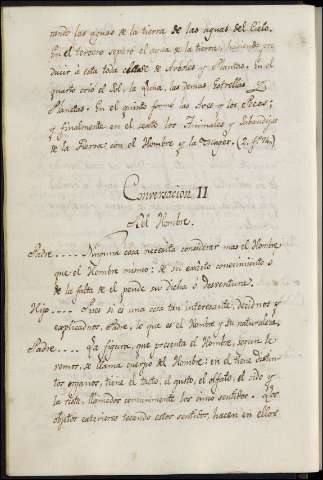 rando las aguas de la tierra de las aguas del Cielo.
En el tercero separó el agua de la tierra, haciendo producir á esta toda clase de Arboles y Plantas. En el
quarto crió el Sol, la Luna, las demas Estrellas y
Planetas. En el quinto formó las Aves y los Peces;
y finalmente en el sexto los Animales y Sabandijas
de la Tierra, con el Hombre y la Muger.
Conversacion II
Del Hombre.
Padre.... Ninguna cosa necesita considerar mas el Hombre,
que el Hombre mismo: de su exâcto conocimiento o
de la falta de el pende su dicha o desventura.
Hijo.... Pues si es una cosa tan interesante, decidnos y
explicadnos, Padre, lo que es el Hombre y su naturaleza.
Padre.... La figura, que presenta el Hombre, segun le
vemos, se llama cuerpo del Hombre: en el tiene distintos organos, tiene el tacto, el gusto, el olfato, el oido y
la vista, llamados comunmente los cinco sentidos. Los
objetos exteriores tocando estos sentidos, hacen en ellos